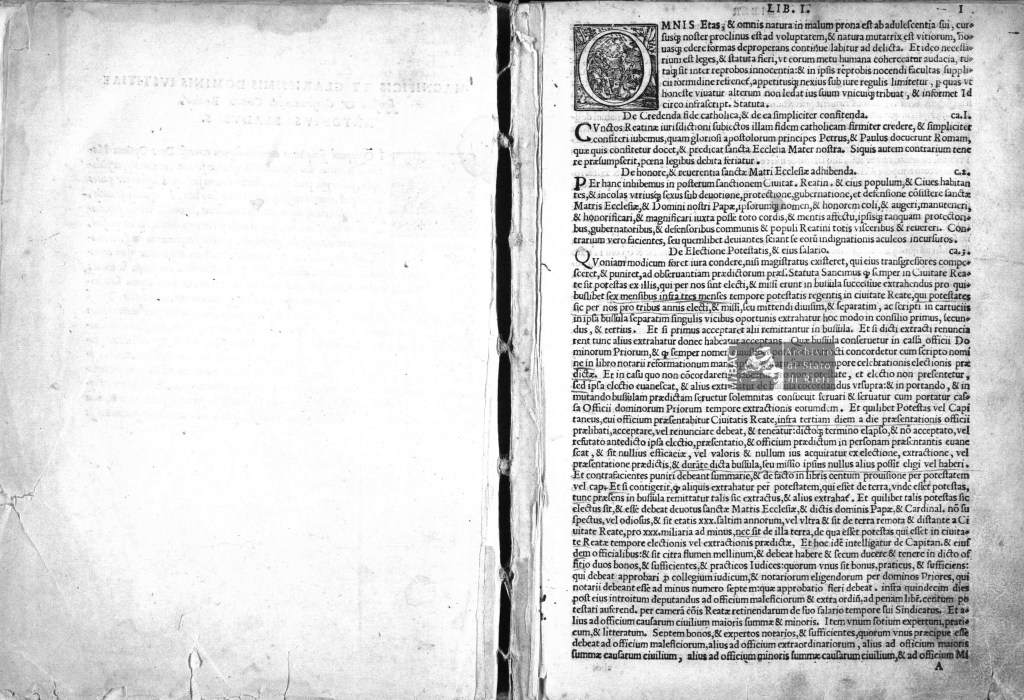 LIB. I.
I
OMNIS Etas, & omnis natura in malum prona est ab adulescentia sui, cur
susq; noster proclinus est ad voluptatem, & natura mutatrix est vitiorum,
uasq; cedere formas deproperans continue labitur ad delicta. Et ideo necessa
rium est leges, & statuta fieri, vt eorum metu humana coherceatur audacia, tu
taq; sit inter reprobos innocentia: & in ipsis reprobis nocendi facultas suppli
cii formidine refrenet, appetitusq; nexius sub iure regulis limitetur, quas vt
honeste viuatur alterum non ledat ius suum vnicuiq; tribuat, & informet Id
circo infrascript. Statuta.
De Credenda fide catholica, & de ea simpliciter confitenda. ca. I.
CVnctos Reatinæ iurisdictioni subiectos illam fidem catholicam firmiter credere, & simpliciter
confiteri iubemus, quam gloriosi apostolorum principes Petrus, & Paulus docuerunt Romam,
quæquis confitetur docet, & predicat sancta Ecclesia Mater nostra. Siquis autem contrarium tene
re præsumpserit, pœna legibus debita feriatur.
De honore, & reuerentia sanctæ Matri Ecclesiæ adhibenda. c. 2.
PEr hanc inhibemus in posterum sanctionem Ciuitat. Reatin. & eius populum, & Ciues habitan
tes, & incolas vtriusq; sexus sub deuotione, protectione, gubernatione, et defensione cõsistere sanctæ
Matris Ecclesiæ, & Domini nostri Papæ, ipsorumq; nomen, & honorem coli, & augeri, manuteneri,
& honorificari, & magnificari iuxta posse toto cordis, & mentis affectu, ipsisq; tanquam protectori
bus, gubernatoribus, & defensoribus communis & populi Reatini totis visceribus & reuereri. Con
trarium vero facientes, seu quemlibet deuiantes sciant se eorũ indignationis aculeos incursuros.
De Electione Potestatis, & eius salario. ca. 3.
QVoniam modicum foret iura condere, nisi magistratus existeret, qui eius transgressores compe
sceret, & puniret, ad obseruantiam prædictorum præs. Statuta Sancimus q semper in Ciuitate Rea
te sit potestas ex illis, qui per nos sunt electi, & missi erunt in bussula successiue extrahendus pro qui
buslibet sex mensibus infra tres menses tempore potestatis regentis in ciuitate Reate, qui potestates
sic per nos pro tribus annis electi, & missi, seu mittendi diuisim, & separatim, ac scripti in cartuciis
in ipsa bussula separatim singulis vicibus oportunis extrahatur hoc modo in consilio primus, secun
dus, & tertius. Et si primus acceptaret alii remittantur in bussula. Et si dicti extracti renuncia
rent tunc alius extrahatur donec habeatur acceptans. Quæ bussula conseruetur in cassa officii Do
minorum Priorum, & q semper nomen concordetur cum scripto nomi
ne in libro notarii reformationum tempore celebrationis electionis præ
dictæ. Et in casu quo non cõcordaret et electio non presentetur,
sed ipsa electio euanescat, & alius concordandus vtsupra: & in portando, & in
mutando bussulam prædictam seruetur solemnitas consueuit seruari & seruatur cum portatur cas
sa Officii dominorum Priorum tempore extractionis eorumdem. Et quilibet Potestas vel Capi
taneus, cui officium præsentabitur Ciuitatis Reate, infra tertiam diem a die præsentationis officii
prælibati, acceptare, vel renunciare debeat, & teneatur: dictoq; termino elapso, & nõ acceptato, vel
refutato antedicto ipsa electio, præsentatio, & officium prædictum in personam præsentantis euane
scat, & sit nullius efficaciæ, vel valoris & nullum ius acquiratur ex electione, extractione, vel
præsentatione prædictis, & durãte dicta bussula, seu missio ipsius nullus alius possit eligi vel haberi.
Et contrafacientes puniri debeant summarie, & de facto in libris centum prouisione per potestatem
vel cap. Et si contigerit, q aliquis extrahatur per potestatem, qui esset de terra, vnde esset potestas,
tunc præsens in bussula remittatur talis sic extractus, & alius extrahat. Et quilibet talis potestas sic
electus sit, & esse debeat deuotus sanctæ Matris Ecclesiæ, & dictis dominis Papæ, & Cardinal. nõ su
spectus, vel odiosus, & sit etatis xxx. saltim annorum, vel vltra & sit de terra remota & distante a Ci
uitate Reate, pro xxx. miliaria ad minus, nec sit de illa terra, de qua esset potestas qui esset in ciuita-
te Reatæ tempore electionis vel extractionis prædictæ, Et hoc idẽ intelligatur de Capitan. & eius
dem officialibus: & sit citra flumen mellinum, & debeat habere & secum ducere & tenere in dicto of
fitio duos bonos, & sufficientes, & practicos Iudices: quorum vnus sit bonus, praticus, & sufficiens:
qui debeat approbari p collegium iudicum, & notariorum eligendorum per dominos Priores, qui
notarii debeant esse ad minus numero septem: quæ approbatio fieri debeat. infra quindecim dies
post eius introitum deputandus ad officium maleficiorum & extra ordiñ, ad penam libr. centum po
testati auferend. per camerã cõis Reatæ retinendarum de suo salario tempore sui Sindicatus. Et a-
lius ad officium causarum ciuilium maioris summæ & minoris. Item vnum sotium expertum, prati
cum, & litteratum. Septem bonos, & expertos notarios, & sufficientes, quorum vnus præcipue esse
debeat ad officium maleficiorum, alius ad officium extraordinariorum, alius ad officium maioris
summæ causarum ciuilium, alius ad officium minoris summæ causarum ciuilium, & ad officium Ml
A
Archivio
di Stato
di Rieti